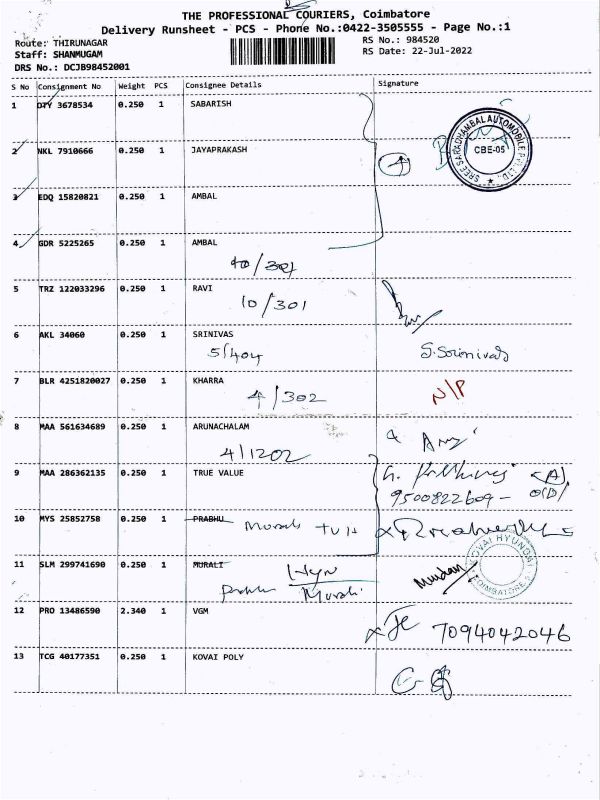 THE PROFESSIONAL COURIERS, Coimbatore
Delivery Runsheet - PCS - Phone No.:0422-3505555 - Page No.:1
Route: THIRUNAGAR
RS No.: 984520
Staff: SHANMUGAM
RS Date: 22-Jul-2022
DRS No.: DCJB98452001
S No Consignment No Weight PCS Consignee Details Signature
1 DTY 3678534 0.250 1 SABARISH
SREE SARADHAMBAL AUTOMOBILE PVT. LTD.
CBE-05
2 NKL 7910666 0.250 1 JAYAPRAKASH
3 EDQ 15820821 0.250 1 AMBAL
4 GDR 5225265 0.250 1 AMBAL
10/301
5 TRZ 122033296 0.250 1 RAVI
10/301
6 AKL 34060 0.250 1 SRINIVAS
5/404 S.Srinivas
7 BLR 4251820027 0.250 1 KHARRA
4/302 N/P
8 MAA 561634689 0.250 1 ARUNACHALAM
4/1202
9 MAA 286362135 0.250 1 TRUE VALUE
9500822609 -
10 MYS 25852758 0.250 1 PRABHU Murali
KOVAI HYUNDAI
COIMBATORE
11 SLM 299741690 0.250 1 MURALI
Murali
12 PRO 13486590 2.340 1 VGM
7094042046
13 TCG 40177351 0.250 1 KOVAI POLY